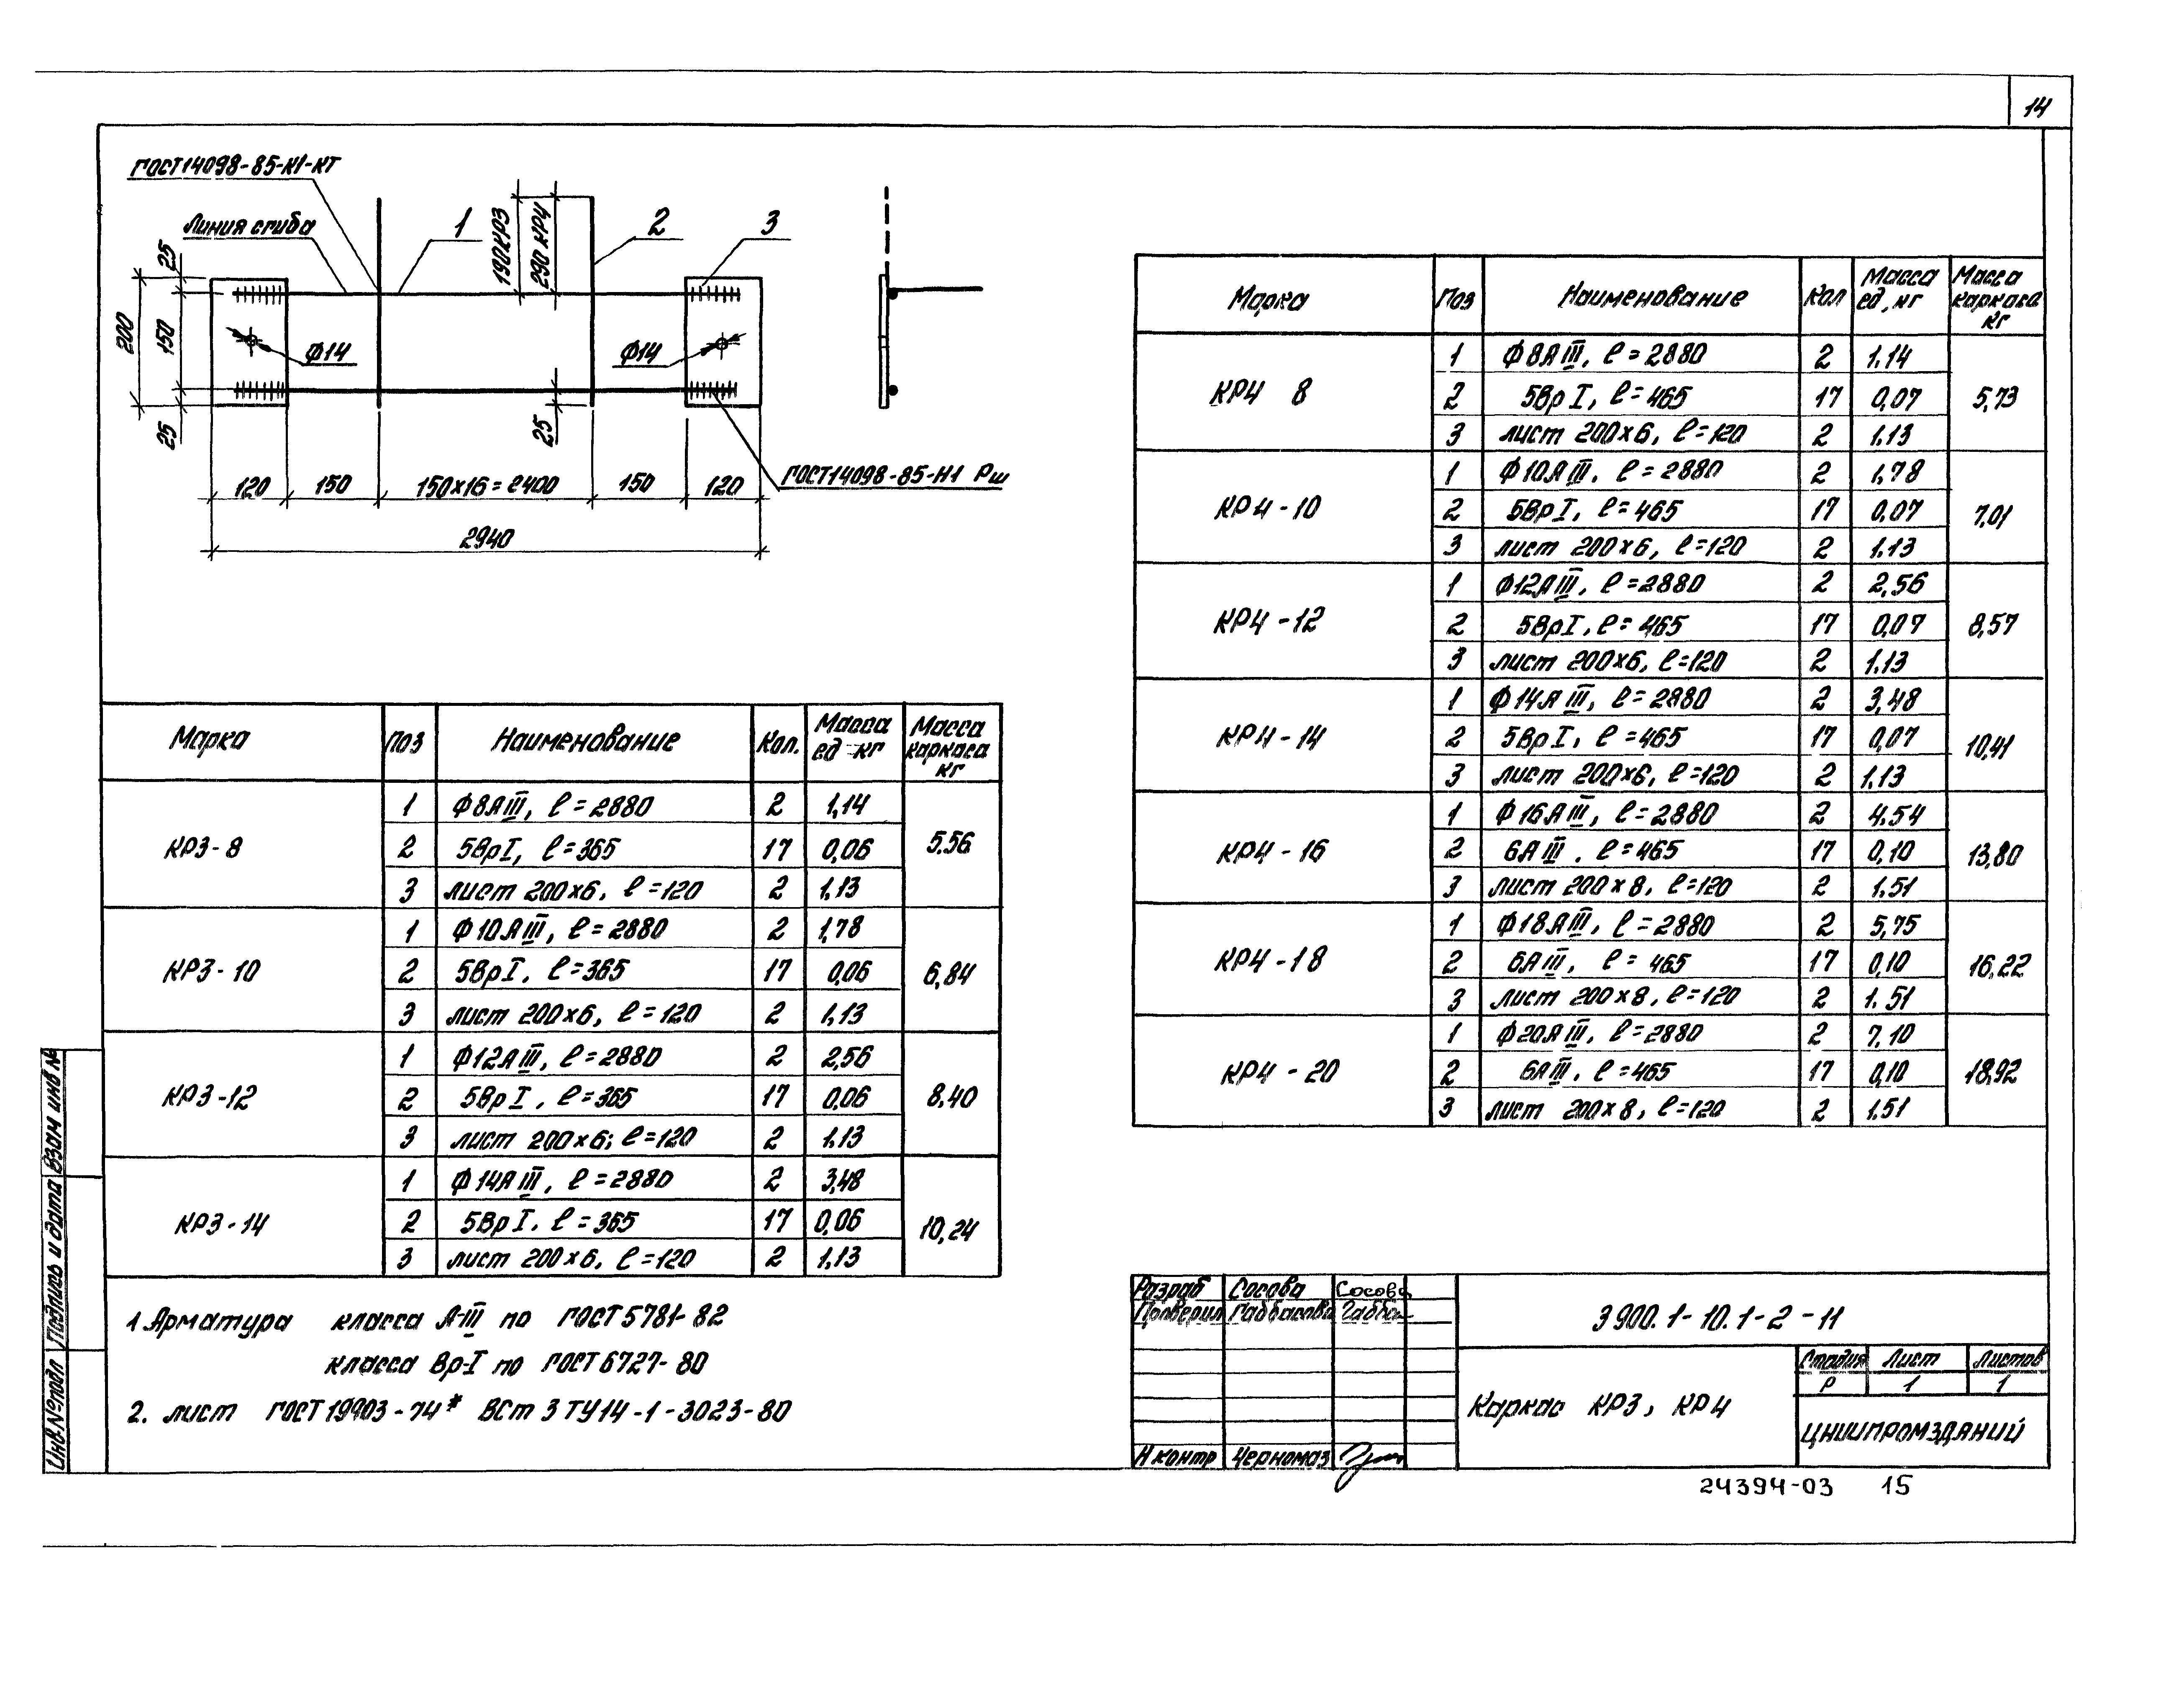 14
ГОСТ14098-85-К1-КТ
Линия сгиба
1
190КР3
290 КР4
2
3
25
200
150
25
Ф14
Ф14
25
ГОСТ14098-85-Н1 Рш
120 150 150х16=2400 150 120
2940
Марка Поз Наименование Кол. Масса ед кг Масса каркаса кг
КР3-8 5.56
1 Ф8АIII, ℓ=2880 2 1,14
2 5ВрI, ℓ=365 17 0,06
3 лист 200х6, ℓ=120 2 1,13
КР3-10 6,84
1 Ф10АIII, ℓ=2880 2 1,78
2 5ВрI, ℓ=365 17 0,06
3 лист 200х6, ℓ=120 2 1,13
КР3-12 8.40
1 Ф12АIII, ℓ=2880 2 2,56
2 5ВрI, ℓ=365 17 0,06
3 лист 200х6; ℓ=120 2 1,13
КР3-14 10,24
1 Ф14АIII, ℓ=2880 2 3,48
2 5ВрI. ℓ=365 17 0,06
3 лист 200х6. ℓ=120 2 1,13
1 Арматура класса А-III по ГОСТ 5781-82
класса Вр-I по ГОСТ 6727-80
2. лист ГОСТ 19903-74* ВСт 3 ТУ14-1-3023-80
Марка Поз Наименование Кол Масса ед, кг Масса каркаса кг
КР4 8 5,73
1 Ф8АIII, ℓ=2880 2 1.14
2 5ВрI, ℓ=465 17 0,07
3 лист 200х6, ℓ=120 2 1.13
КР4-10 7,01
1 Ф10АIII. ℓ=2880 2 1,78
2 5ВрI, ℓ=465 17 0,07
3 лист 200х6, ℓ=120 2 1.13
КР4-12 8,57
1 Ф12АIII, ℓ=2880 2 2,56
2 5ВрI, ℓ=465 17 0,07
3 лист 200х6, ℓ=120 2 1.13
КР4-14 10,41
1 Ф14АIII, ℓ=2880 2 3,48
2 5ВрI, ℓ=465 17 0,07
3 лист 200х6, ℓ=120 2 1,13
КР4-16 13,80
1 Ф16АIII, ℓ=2880 2 4.54
2 6АIII. ℓ=465 17 0,10
3 лист 200х8, ℓ=120 2 1.51
КР4-18 16,22
1 Ф18АIII, ℓ=2880 2 5,75
2 6АIII, ℓ=465 17 0,10
3 лист 200х8, ℓ=120 2 1.51
КР4-20 18,92
1 Ф20АIII, ℓ=2880 2 7,10
2 6АIII. ℓ=465 17 0,10
3 лист 200х8, ℓ=120 2 1.51
Разраб Сосова Сосова
Проверил Габбасова Габбас
Н контр Черномаз
3 900.1-10.1-2-11
Каркас КР3, КР4
Стадия Лист Листов
Р 1 1
ЦНИИПРОМЗДАНИЙ
24394-03 15
Инв.№подл Подпись и дата Взам инв №